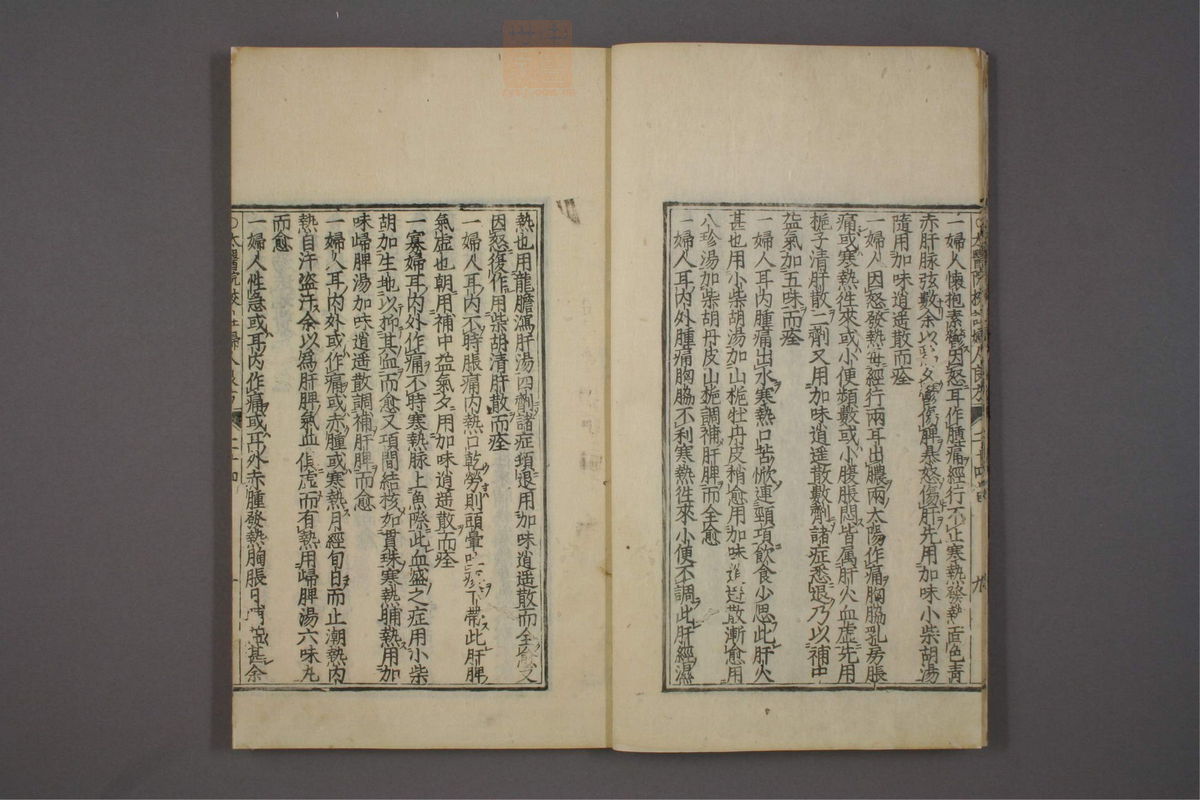 一婦人懷抱素鬱因怒耳作腫痛經行不止寒熱發熱面色青
赤肝脉弦數余以為久鬱傷脾暴怒傷肝先用加味小柴胡湯
隨用加味逍遥散而痊
一婦人因怒發熱每經行兩耳出膿兩太陽作痛胸脇乳房脹
痛或寒熱徃來或小便頻數或小腹脹悶皆属肝火血虚先用
梔子清肝散二劑又用加味逍遥散數劑諸症悉退乃以補中
益氣加五味而痊
一婦人耳内腫痛出水寒熱口苦焮連頸項飲食少思此肝火
甚也用小柴胡湯加山梔牡丹皮稍愈用加味逍遥散漸愈用
八珍湯加柴胡丹皮山梔調補肝脾而全愈
一婦人耳内外腫痛胸脇不利寒熱徃來小便不調此肝經濕
熱也用龍膽瀉肝湯四劑諸症頓退用加味逍遥散而全愈又
因怒復作用柴胡清肝散而痊
一婦人耳内不時脹痛内熱口乾勞則頭暈吐痰下帶此肝脾
氣虚也朝用補中益氣夕用加味逍遥散而痊
一寡婦耳内外作痛不時寒熱脉上魚際此血盛之症用小柴
胡加生地以抑其血而愈又項間結核如貫珠寒熱晡熱用加
味歸脾湯加味逍遥散調補肝脾而愈
一婦人耳内外或作痛或赤腫或寒熱月經旬日而止潮熱内
熱自汗盗汗余以為肝脾氣血俱虚而有熱用歸脾湯六味丸
而愈
一婦人性急或耳内作痛或耳外赤腫發熱脇脹日晡益甚余